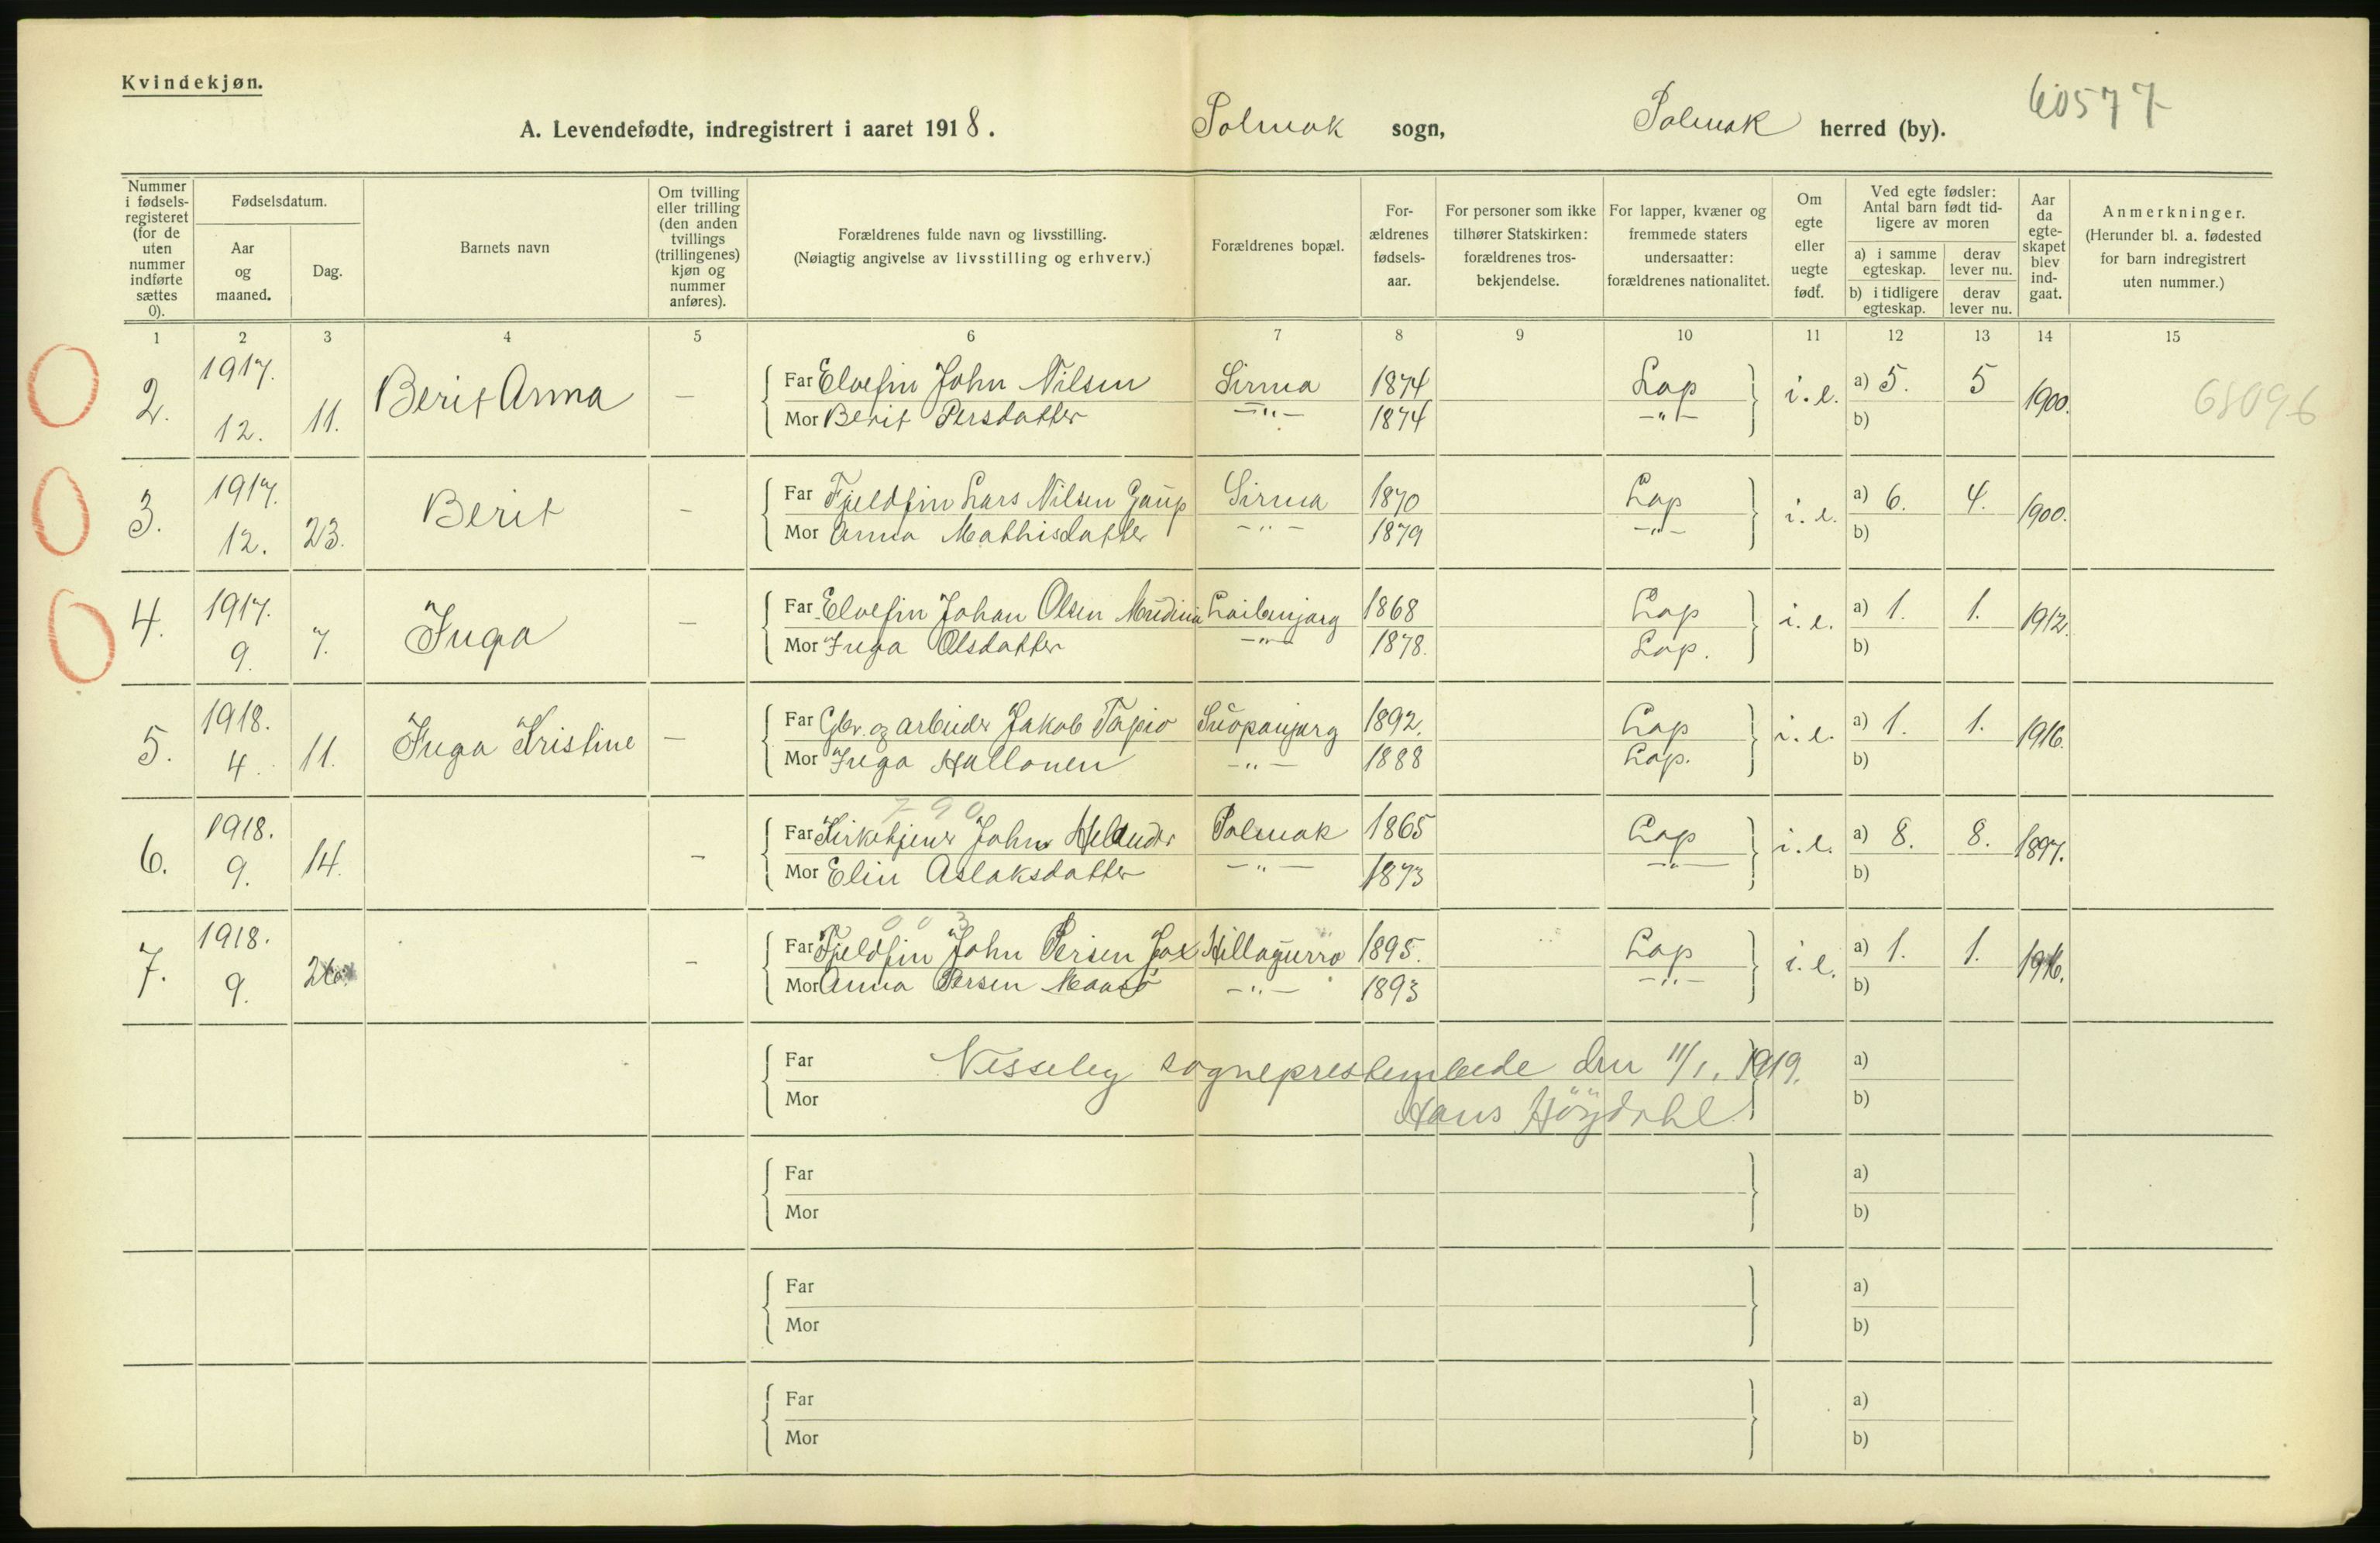 Kvindekjøn.
A. Levendefødte, indregistrert i aaret 1918. Polmak sogn, Polmak herred (by). 60577
Nummer i fødselsregisteret (for de uten nummer indførte sættes 0).
Fødselsdatum.
Aar og maaned.
Dag.
Barnets navn
Om tvilling eller trilling (den anden tvillings (trillingenes) kjøn og nummer anføres).
Forældrenes fulde navn og livsstilling.
(Nøiagtig angivelse av livsstilling og erhverv.)
Forældrenes bopæl.
Forældrenes fødselsaar.
For personer som ikke tilhører Statskirken: forældrenes trosbekjendelse.
For lapper, kvæner og fremmede staters undersaatter: forældrenes nationalitet.
Om egte eller uegte født.
Ved egte fødsler: Antal barn født tidligere av moren
a) i samme egteskap. derav lever nu.
b) i tidligere egteskap. derav lever nu.
Aar da egteskapet blev indgaat.
Anmerkninger.
(Herunder bl. a. fødested for barn indregistrert uten nummer.)
1 2 3 4 5 6 7 8 9 10 11 12 13 14 15
2. 1917. 12. 11. Berit Anna — Far Elvefin John Nilsen Sirma 1874 Lap i.e. a) 5. 5 1900. 68096
Mor Berit Persdatter —"— 1874 —"— b)
3. 1917. 12. 23. Berit — Far Fjeldfin Lars Nilsen Gaup Sirma 1870 Lap i.e. a) 6. 4. 1900.
Mor Anna Mathisdatter —"— 1879 —"— b)
4. 1917. 9. 7. Inga — Far Elvefin Johan Olsen 1868 Lap i.e. a) 1. 1. 1912.
Mor Inga Olsdatter —"— 1878. Lap. b)
5. 1918. 4. 11. Inga Kristine — Far Gbr. og arbeider Jakob Tapio 1892. Lap i.e. a) 1. 1. 1916.
Mor Inga Hallonen —"— 1888 Lap. b)
790
6. 1918. 9. 14. — Far Kirketjener John Helander Polmak 1865 Lap i.e. a) 8. 8. 1897.
Mor Elin Aslaksdatter —"— 1873 —"— b)
003
7. 1918. 9. 26. — Far Fjeldfin John Persen Hillagurra 1895. Lap i.e. a) 1. 1. 1916.
Mor Anna Persen Maasø —"— 1893 —"— b)
Far Nesseby sogneprestembede den 11/1. 1919. a)
Mor Hans Höydahl b)
Far a)
Mor b)
Far a)
Mor b)
Far a)
Mor b)